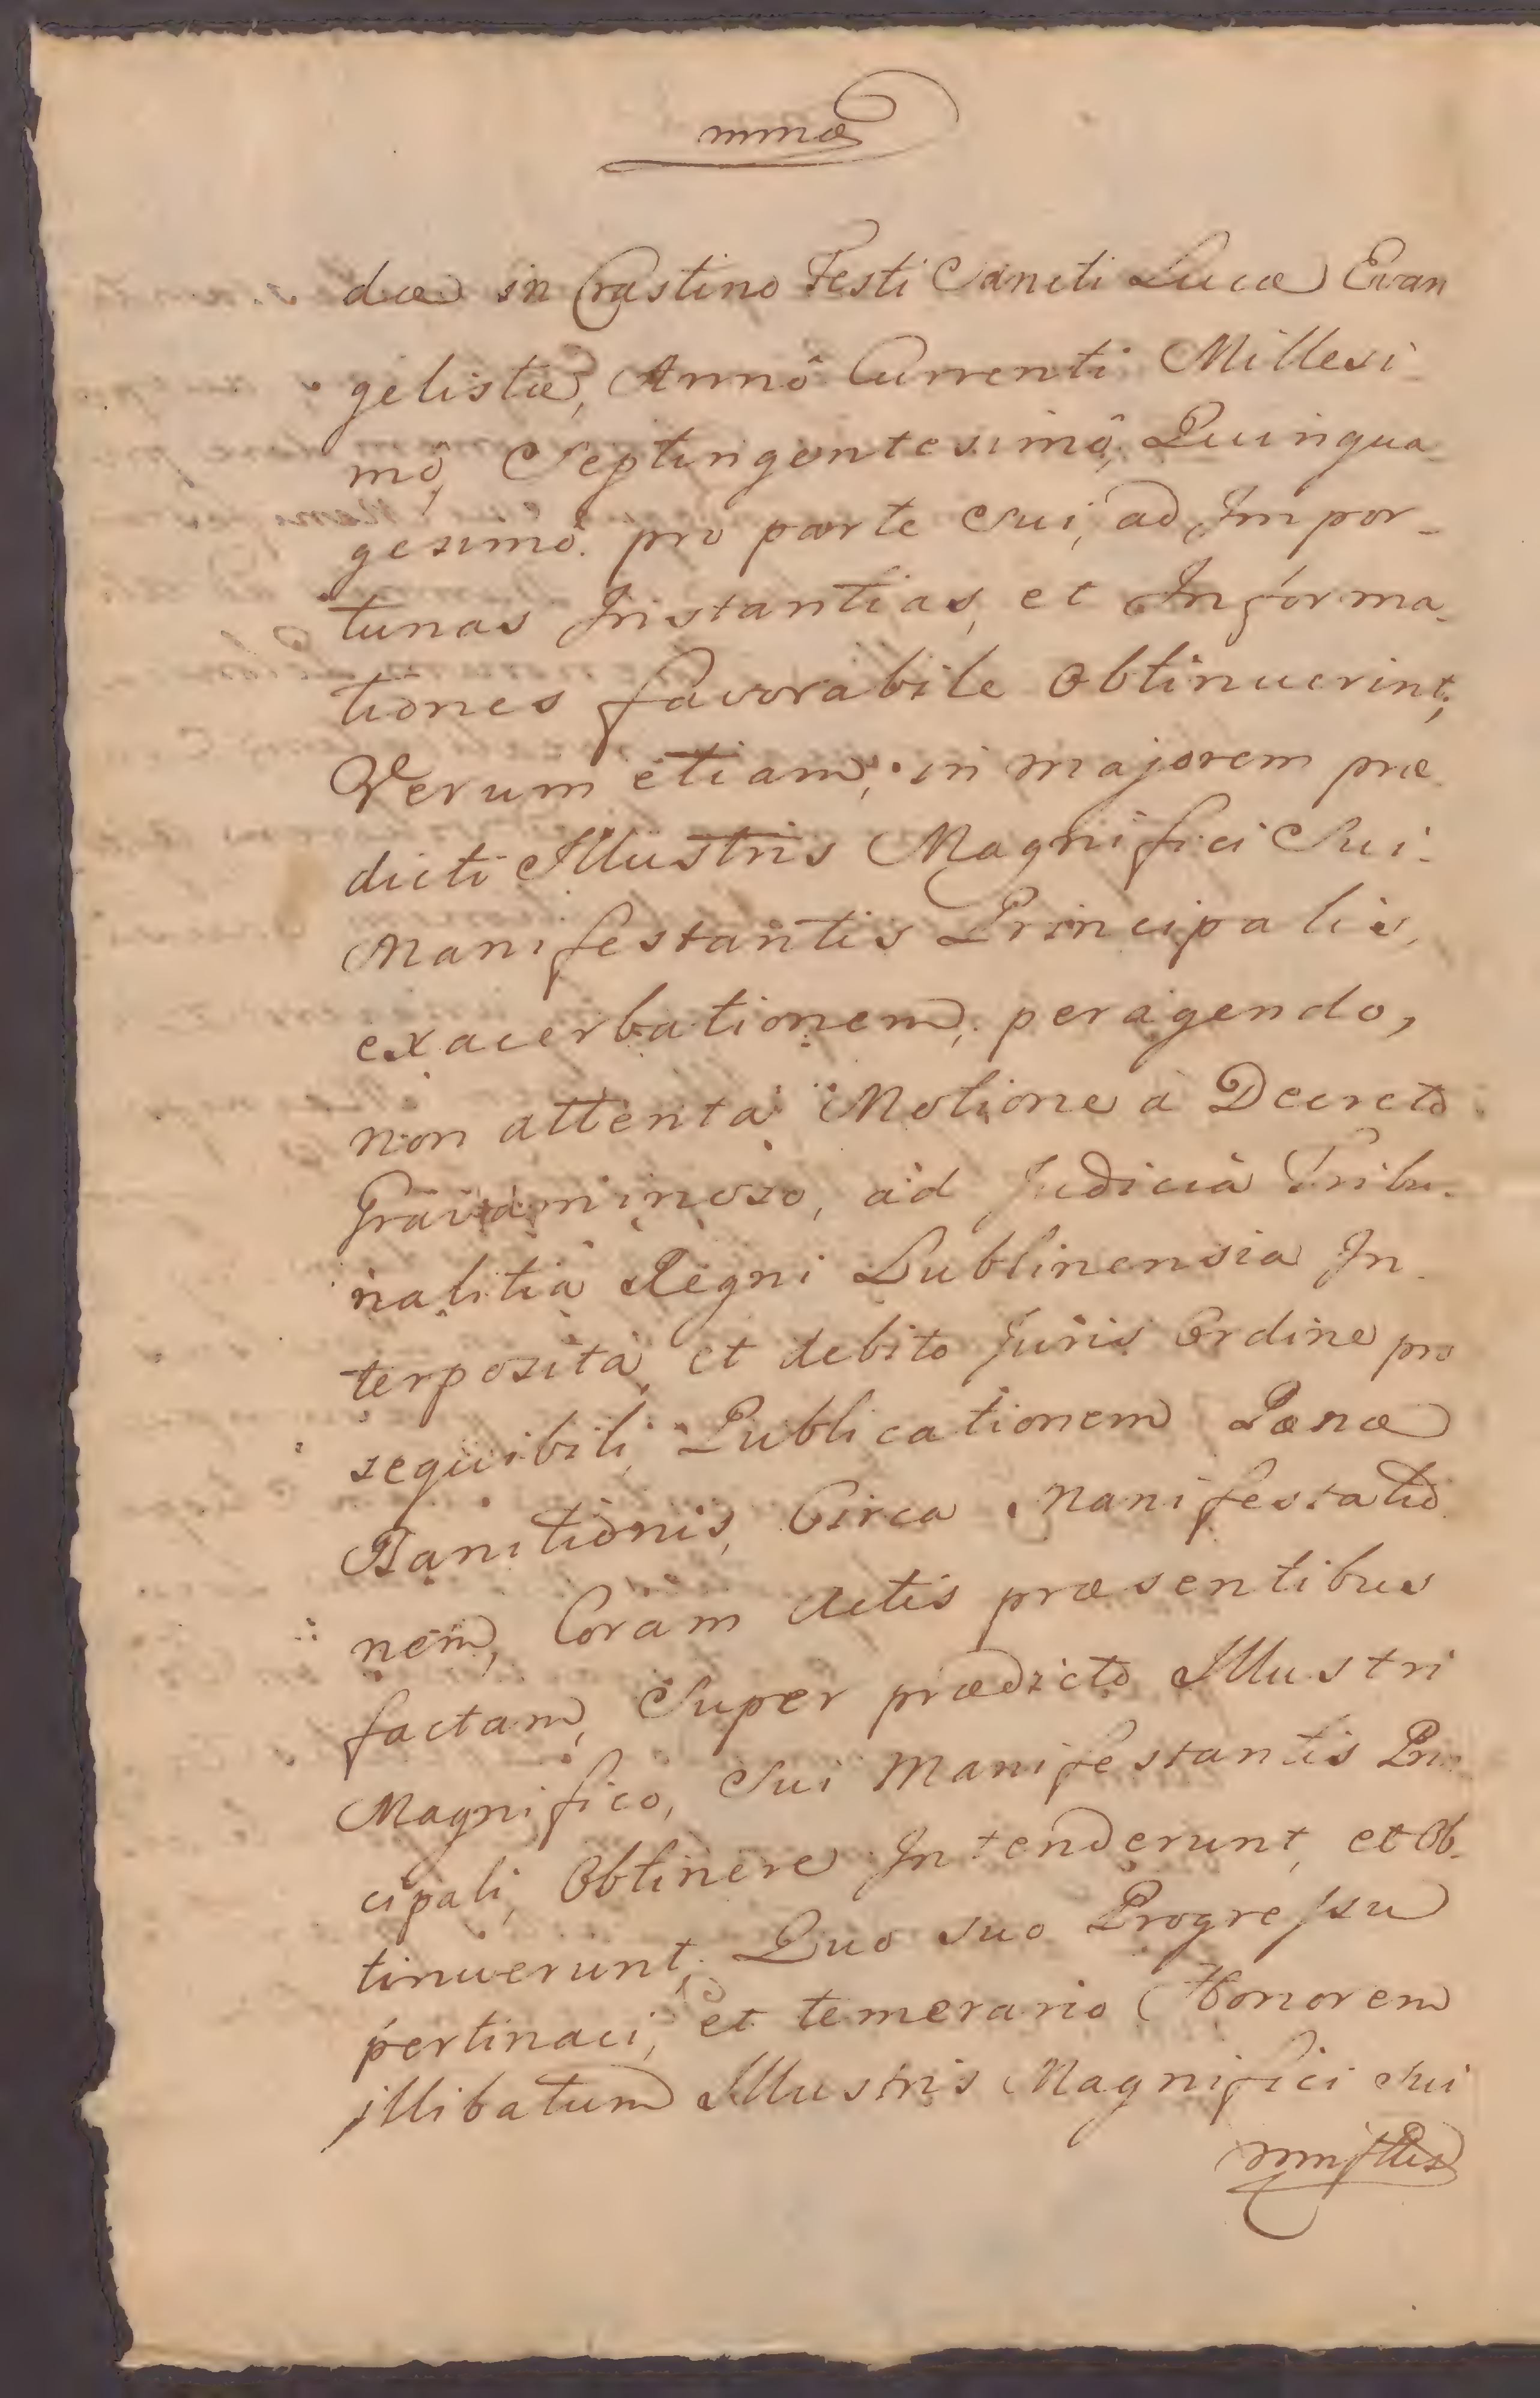 mmæ
dæ in Crastino Festi Sancti Lucæ Evan
gelistæ, Annô Currenti Millesi-
mô, Septingentesimô, Quinqua-
gesimô. pro parte sui, ad Impor-
tunas Instantias, et Informa-
tiones favorabile obtinuerint;
Verum etiam, in majorem præ
dicti Illustris Magnifici Sui-
Manifestantis Principalis,
exacerbationem, peragendo,
non attenta Motione a Decreto
Gravaminoso, ad Judicia Tribu-
nalitia Regni Lublinensia In-
terposita, et debito Juris Ordine pro
sequibili, Publicationem Pœnæ
Banitionis, Circa Manifestatio
nem, Coram Actis præsentibus
factam, Super prædicto Illustri
Magnifico, Sui Manifestantis Prin
cipali, Obtinere Intenderunt, et Ob-
tinuerunt, Quo suo Progressu
pertinaci, et temerario Honorem
illibatum Illustris Magnifici Sui